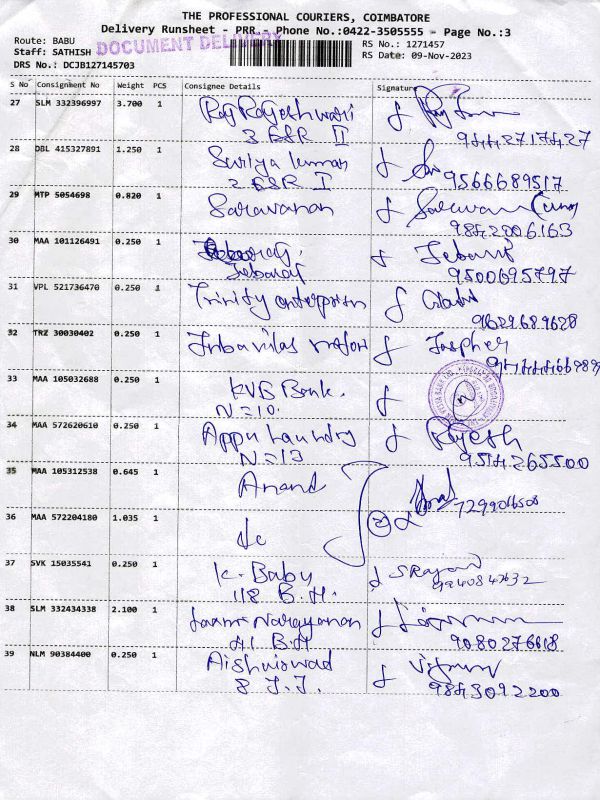 THE PROFESSIONAL COURIERS, COIMBATORE
Delivery Runsheet - PRR - Phone No.:0422-3505555 - Page No.:3
Route: BABU
DOCUMENT DELIVERY
RS No.: 1271457
Staff: SATHISH
RS Date: 09-Nov-2023
DRS No.: DCJB127145703
S No Consignment No Weight PCS Consignee Details Signature
27 SLM 332396997 3.700 1 Raj Rajeshwari
3 ESR II 9442717427
28 DBL 415327891 1.250 1 Suriya kumar
2 ESR I 9566689517
29 MTP 5054698 0.820 1 Saravanan
9842006163
30 MAA 101126491 0.250 1
Jebaraj 9500695797
31 VPL 521736470 0.250 1 Trinity enterprises
9629689628
32 TRZ 30030402 0.250 1 Jaspher
33 MAA 105032688 0.250 1 KVB Bank.
N=10.
34 MAA 572620610 0.250 1 Appu Laundry Rajesh
N=13 9514265500
35 MAA 105312538 0.645 1 Anand
7299016508
36 MAA 572204180 1.035 1 dc
37 SVK 15035541 0.250 1 K. Baby S Rajan
118 B.H. 9940842632
38 SLM 332434338 2.100 1 Laxmi Narayanan
41 B.H 9080276618
39 NLM 90384400 0.250 1 Aishwiswad
8 J.J. 9843092200